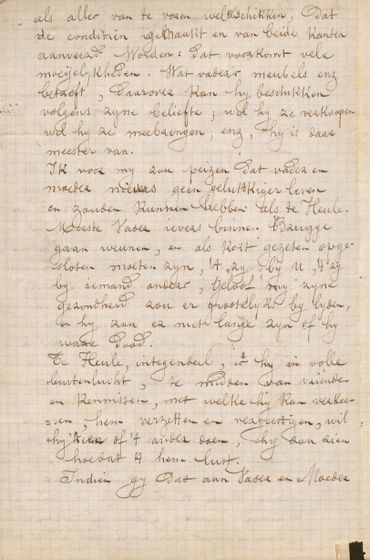 als aller van te voren wel schikken, dat
de conditien gemaakt en van beide kanten
aanveerd worden: dat voorkomt vele
moeijelykheden. Wat vaders meubels enz
betreft, daarover kan hy beschikken
volgens zyne beliefte; wil hy ze verkoopen
wil hy ze meebrengen, enz, hy is daar
meester van.
Ik voor my zou peizen dat vader en
moeder nievers geen gelukkiger leven
en zouden kunnen hebben als te Heule.
Moeste Vader ievers binne Brugge
gaan weunen, en als kort gezeten opge-
sloten moeten zyn, 't zy by u, 't zy
by iemand ander, geloof my zyne
gezondheid zou er grootelyks by lyden,
en hy zou er niet lange zyn of hy
ware dood.
Te Heule, integendeel, is hy in volle
buitenlucht, te midden van vrienden
en kennissen, met welke hy kan verkee-
=ren, hem verzetten en verlustigen, wil
hy of 't anders doen, hy kan zien
hoedat 't hem lust.
Indien gy dat aan Vader en Moeder